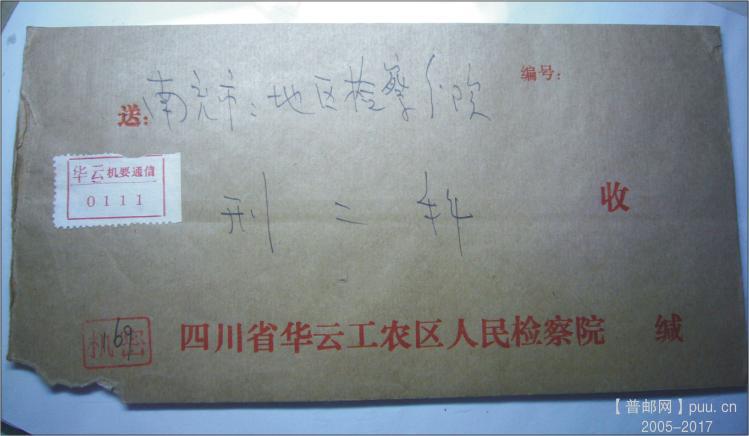 编号：
送：南充市：地区检察分院
华云机要通信
0111
刑二科 收
机密
69
四川省华云工农区人民检察院 缄
【普邮网】puu.cn
2005-2017